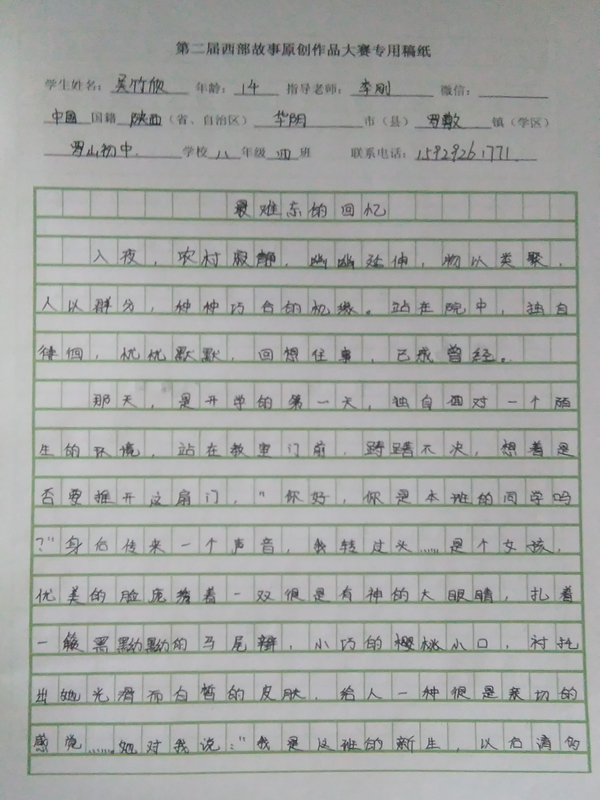 第二届西部故事原创作品大赛专用稿纸
学生姓名：吴竹欣 年龄：14 指导老师：李刚 微信：
中國 国籍 陕西（省、自治区） 华阴 市（县） 罗敷 镇（学区）
罗山初中 学校 八 年级 四 班 联系电话：15929261771
最难忘的回忆
入夜，农村寂静，幽幽延伸，物以类聚，
人以群分，种种巧合的机缘。站在院中，独自
徘徊，忧忧默默，回想往事，已成曾经。
那天，是开学的第一天，独自面对一个陌
生的环境，站在教室门前，踌躇不决，想着是
否要推开这扇门，“你好，你是本班的同学吗
？”身后传来一个声音，我转过头……是个女孩，
优美的脸庞着一双很是有神的大眼睛，扎着
一黑黝黝的马尾辫，小巧的樱桃小口，衬托
出她光滑而白皙的皮肤，给人一种很是亲切的
感觉……她对我说：“我是这班的新生，以后请多